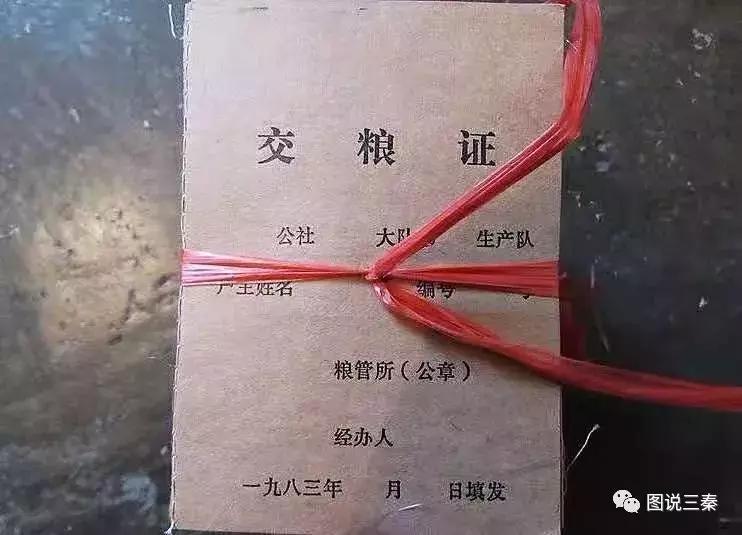 交 粮 证
公社 大队 生产队
户主姓名 编号 号
粮管所（公章）
经办人
一九八三年 月 日填发
图说三秦